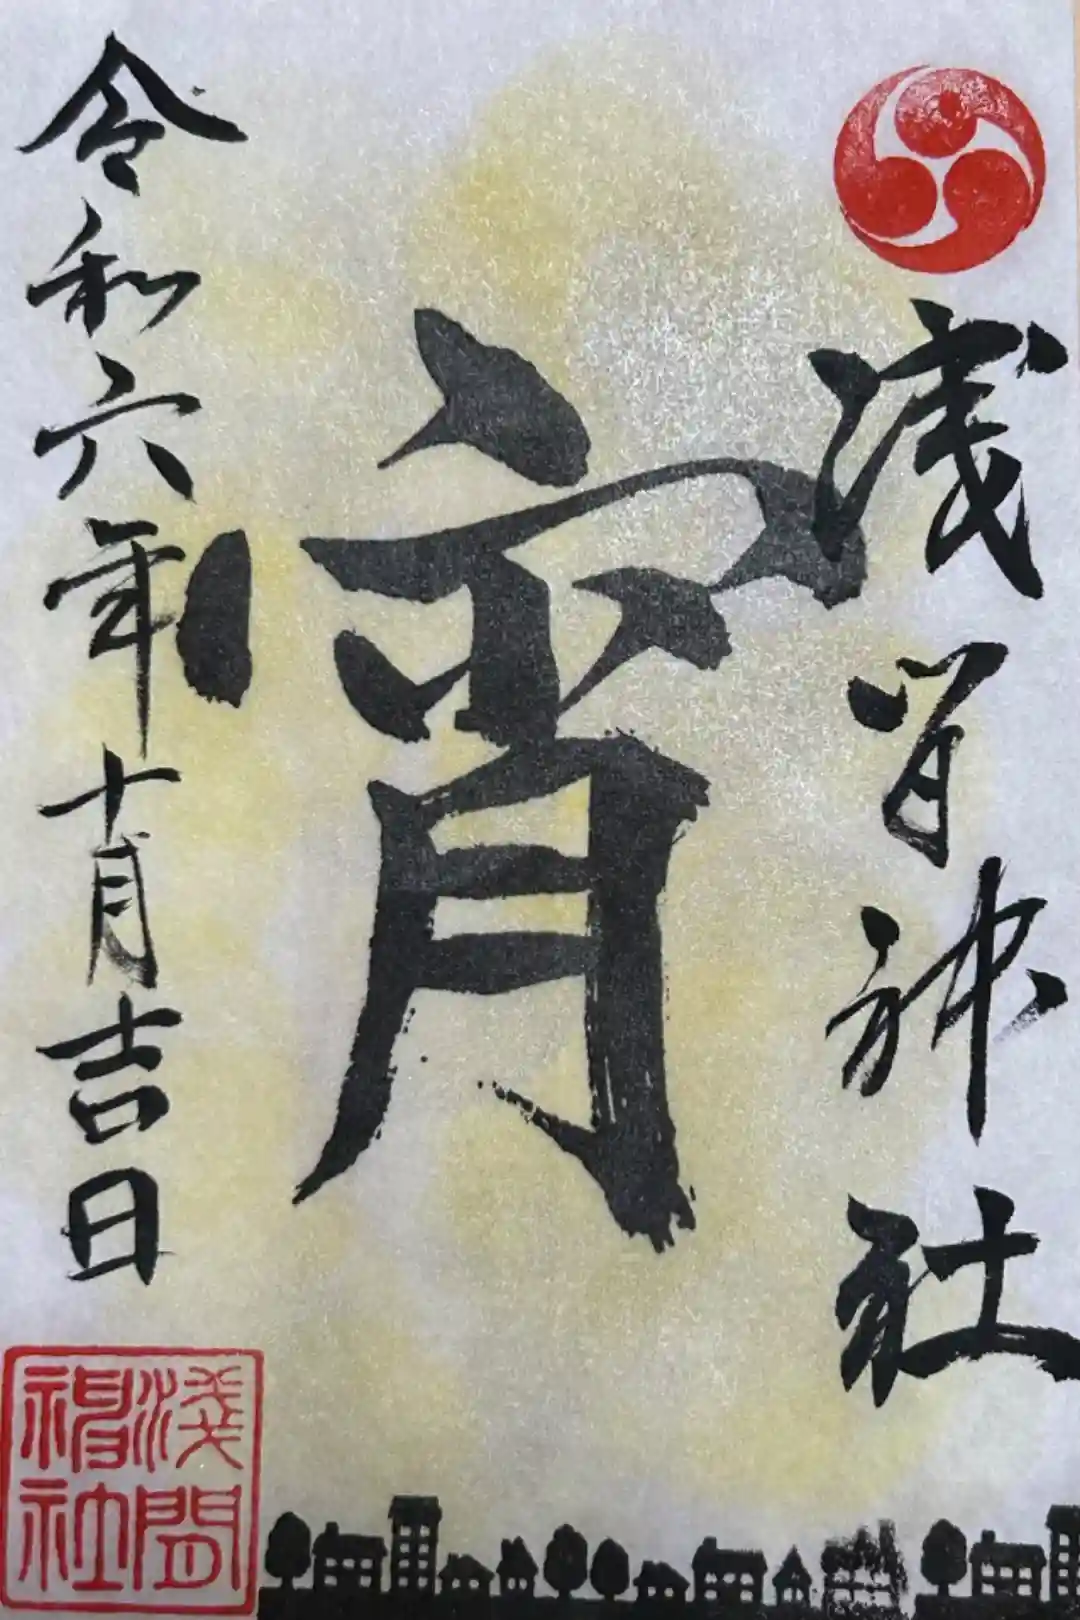 浅间神社
宵
令和六年十月吉日
淺間神社